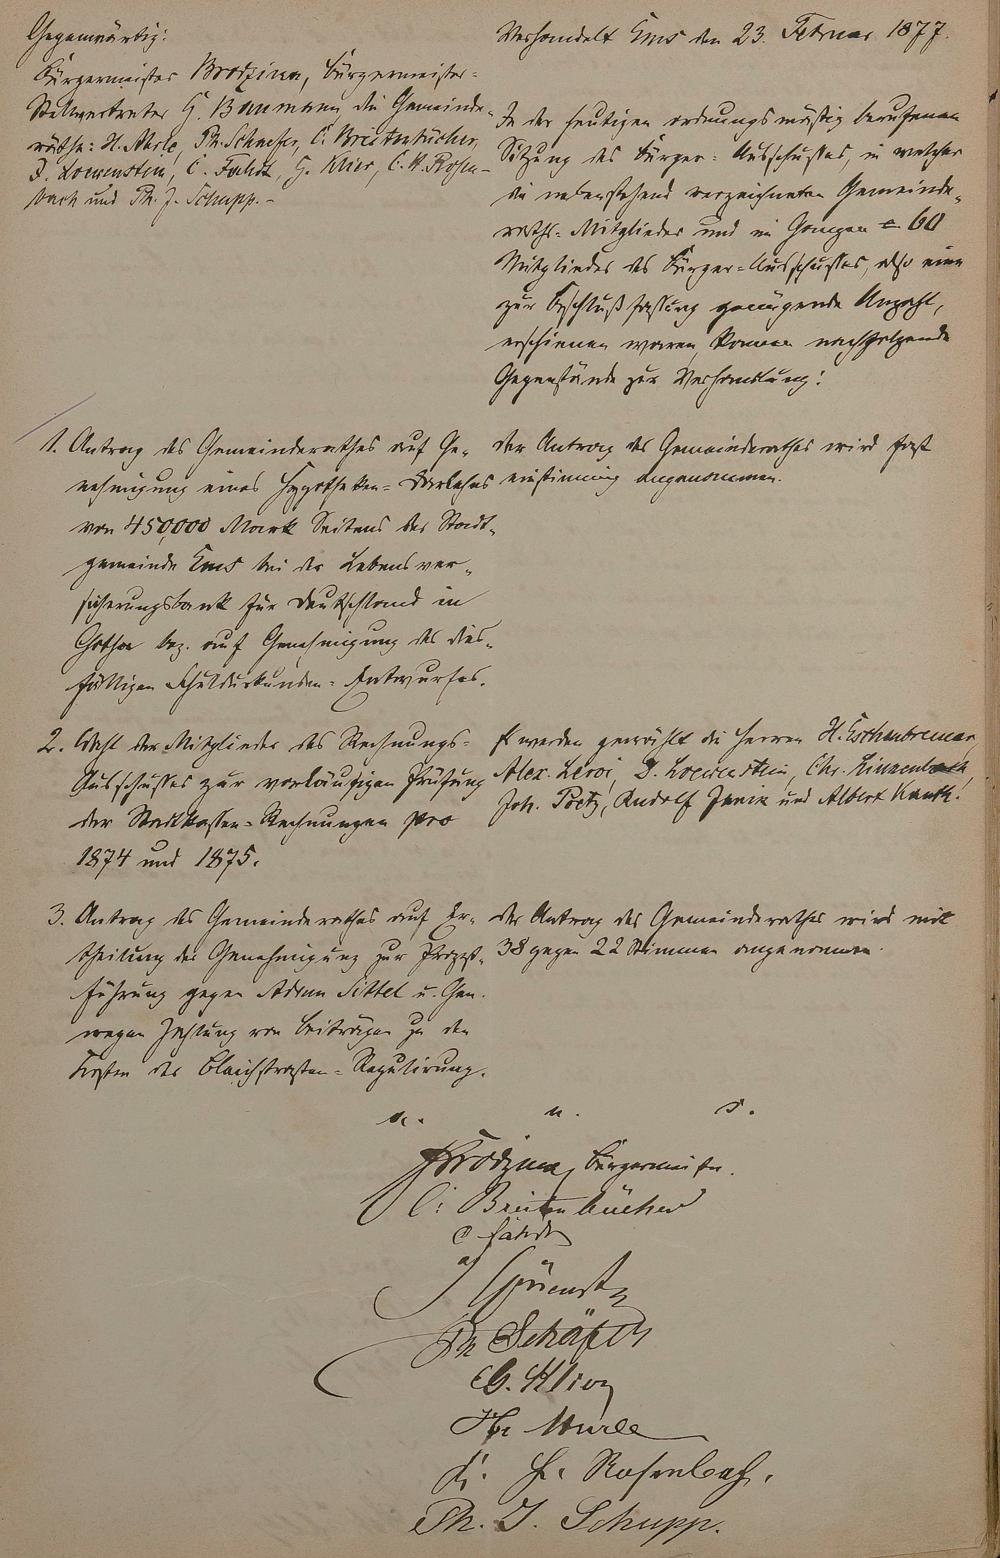 Gegenwärtig:
Bürgermeister Brodzina, Bürgermeister-
Stellvertreter G. Baumann, die Gemeinde-
räthe: H. Merle, Ph. Schaefer, C. Breitenbücher,
J. Loewenstein, C. Fahdt, G. Klier, C. H. Rosen-
bach und Ph. J. Schupp. -
Verhandelt Ems den 23. Februar 1877.
In der heutigen ordnungsmäßig berufenen
Sitzung des Bürger-Ausschusses, in welcher
die nebenstehend verzeichneten Gemeinde-
raths-Mitglieder und im Ganzen 60
Mitglieder des Bürger-Ausschusses, also eine
zur Beschlußfassung genügende Anzahl,
erschienen waren, kamen nachfolgende
Gegenstände zur Verhandlung:
1. Antrag des Gemeinderathes auf Ge-
nehmigung eines Hypotheken-Darlehns
von 450,000 Mark Seitens der Stadt-
gemeinde Ems bei der Lebensver-
sicherungsbank für Deutschland in
Gotha bez. auf Genehmigung des dies-
fälligen Schuldurkunden-Entwurfes.
Der Antrag des Gemeinderathes wird fast
einstimmig angenommen.
2. Wahl der Mitglieder des Rechnungs-
Ausschusses zur vorläufigen Prüfung
der Stadtkassen-Rechnungen pro
1874 und 1875.
Es werden gewählt die Herren H.
Alex. Leroi, D. Loewenstein, Chr. Linnenbach,
Joh. Poetz, Rudolf und Albert Kauth.
3. Antrag des Gemeinderathes auf Er-
theilung der Genehmigung zur Prozeß-
führung gegen Adam Sittel u. Gen.
wegen Zahlung von Beiträgen zu den
Kosten der Bleichstraßen-Regulirung.
Der Antrag des Gemeinderathes wird mit
38 gegen 22 Stimmen angenommen.
a. u. s.
Brodzina, Bürgermeister.
C: Breitenbücher
C Fahdt
Ph Schäfer
G. Klier
H. Merle
C. H. Rosenbach.
Ph. J. Schupp.